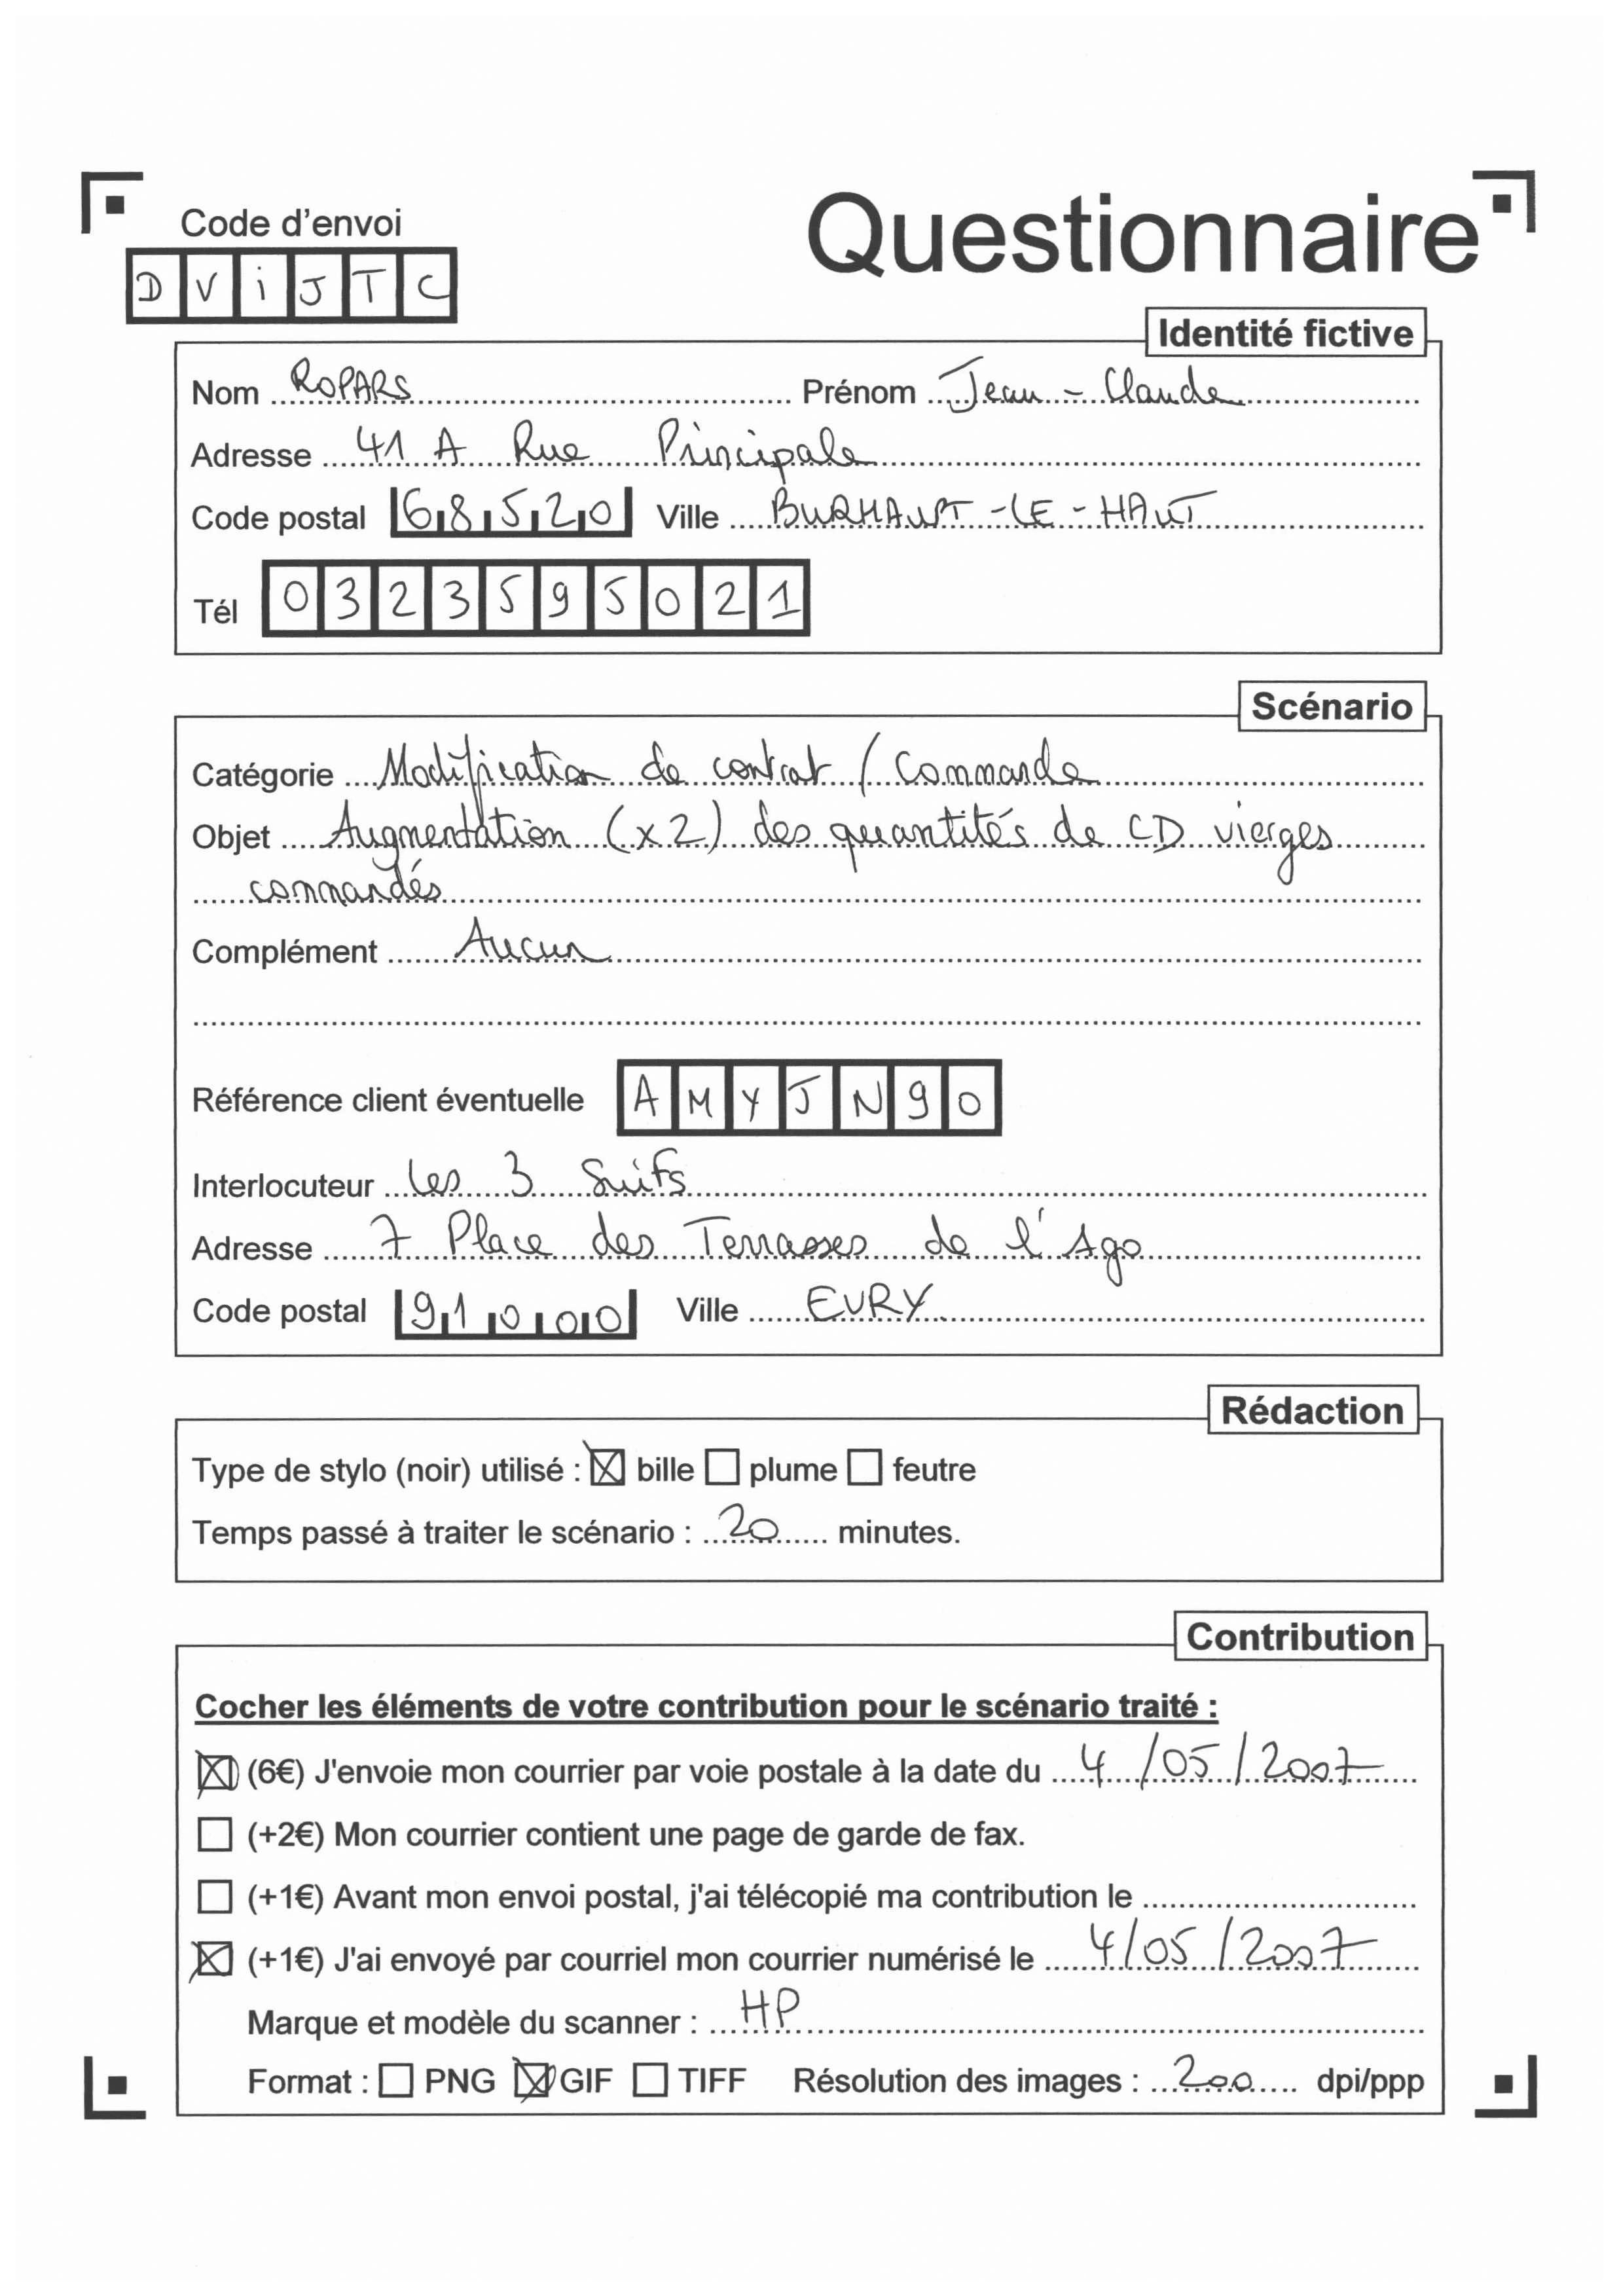 Code d'envoi
Questionnaire
D V i J T C
Identité fictive
Nom ROPARS Prénom Jean-Claude
Adresse 41 A Rue Principale
Code postal 68520 Ville BURHAUPT-LE-HAUT
Tél 0323595021
Scénario
Catégorie Modification de contrat / Commande
Objet Augmentation (x2) des quantités de CD vierges
commandés
Complément Aucun
Référence client éventuelle AMYJN90
Interlocuteur Les 3 Suifs
Adresse 7 Place des Terrasses de l'Ago
Code postal 91000 Ville EVRY
Rédaction
Type de stylo (noir) utilisé : ☒ bille ☐ plume ☐ feutre
Temps passé à traiter le scénario : 20 minutes.
Contribution
Cocher les éléments de votre contribution pour le scénario traité :
☒ (6€) J'envoie mon courrier par voie postale à la date du 4/05/2007
☐ (+2€) Mon courrier contient une page de garde de fax.
☐ (+1€) Avant mon envoi postal, j'ai télécopié ma contribution le
☒ (+1€) J'ai envoyé par courriel mon courrier numérisé le 4/05/2007
Marque et modèle du scanner : HP
Format : ☐ PNG ☒ GIF ☐ TIFF Résolution des images : 200 dpi/ppp